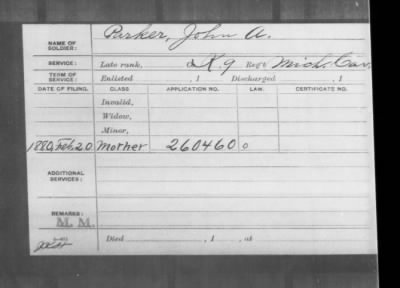 NAME OF SOLDIER: Parker, John A.
SERVICE: Late rank, K. 9 Reg't Mich. Cav.
TERM OF SERVICE: Enlisted , 1 Discharged , 1
DATE OF FILING. CLASS. APPLICATION NO. LAW. CERTIFICATE NO.
Invalid,
Widow,
Minor,
1880, Feb. 20 Mother 260460 o
ADDITIONAL SERVICES:
REMARKS:
M. M.
Died , 1 , at